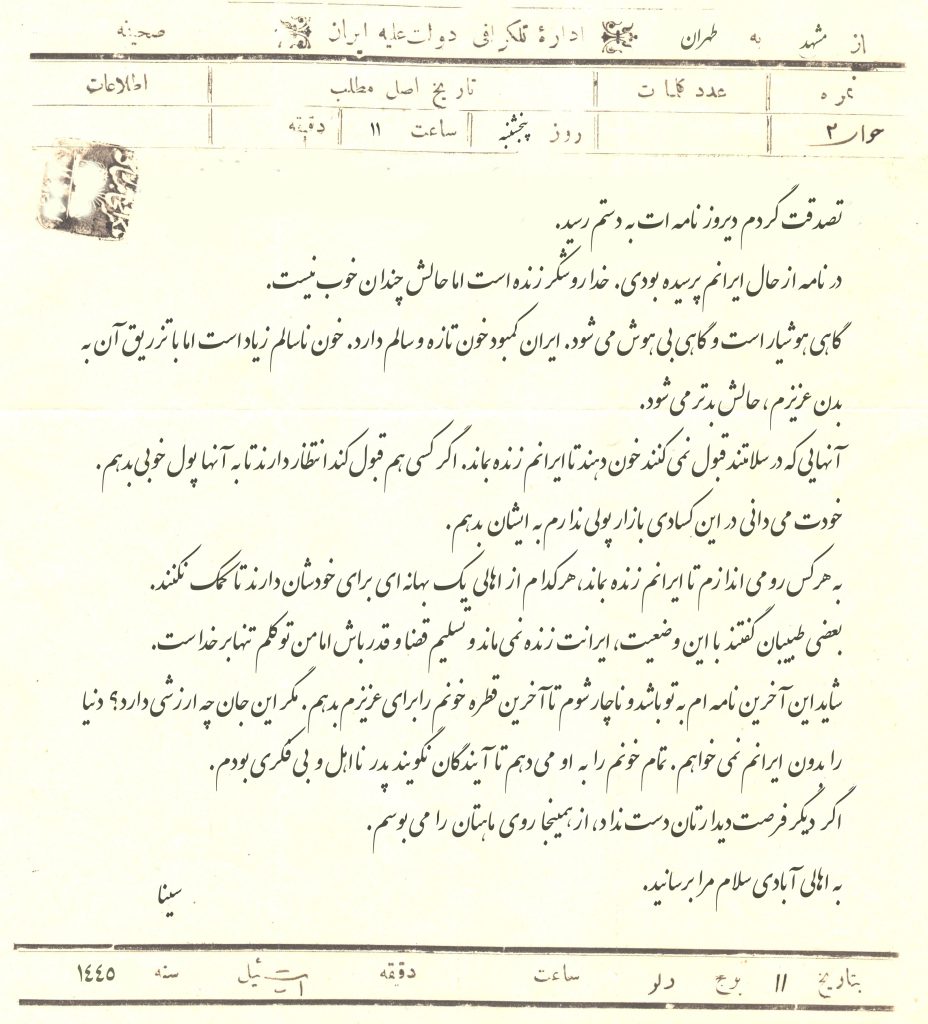 از مشهد به طهران ادارهٔ تلگرافی دولت علیه ایران صحیفه
نمره عدد کلمات تاریخ اصل مطلب اطلاعات
جواب ۲ روز پنجشنبه ساعت ۱۱ دقیقه
تصدقت گردم دیروز نامه ات به دستم رسید.
در نامه از حال ایرانم پرسیده بودی. خدا رو شکر زنده است اما حالش چندان خوب نیست.
گاهی هوشیار است و گاهی بی هوش می شود. ایران کمبود خون تازه و سالم دارد. خون ناسالم زیاد است اما با تزریق آن به
بدن عزیزم، حالش بدتر می شود.
آنهایی که در سلامتند قبول نمی کنند خون دهند تا ایرانم زنده بماند. اگر کسی هم قبول کند انتظار دارند تا به آنها پول خوبی بدهم.
خودت می دانی در این کسادی بازار پولی ندارم به ایشان بدهم.
به هر کس رو می اندازم تا ایرانم زنده بماند، هر کدام از اهالی یک بهانه ای برای خودشان دارند تا کمک نکنند.
بعضی طبیبان گفتند با این وضعیت، ایرانت زنده نمی ماند و تسلیم قضا و قدر باش اما من توکلم تنها بر خداست.
شاید این آخرین نامه ام به تو باشد و ناچار شوم تا آخرین قطره خونم را برای عزیزم بدهم. مگر این جان چه ارزشی دارد؟ دنیا
را بدون ایرانم نمی خواهم. تمام خونم را به او می دهم تا آیندگان نگویند پدر نااهل و بی فکری بودم.
اگر دیگر فرصت دیدارتان دست نداد، از همینجا روی ماهتان را می بوسم.
به اهالی آبادی سلام مرا برسانید.
سینا
بتاریخ ۱۱ برج دلو ساعت دقیقه ئیل سنه ۱٤٤٥